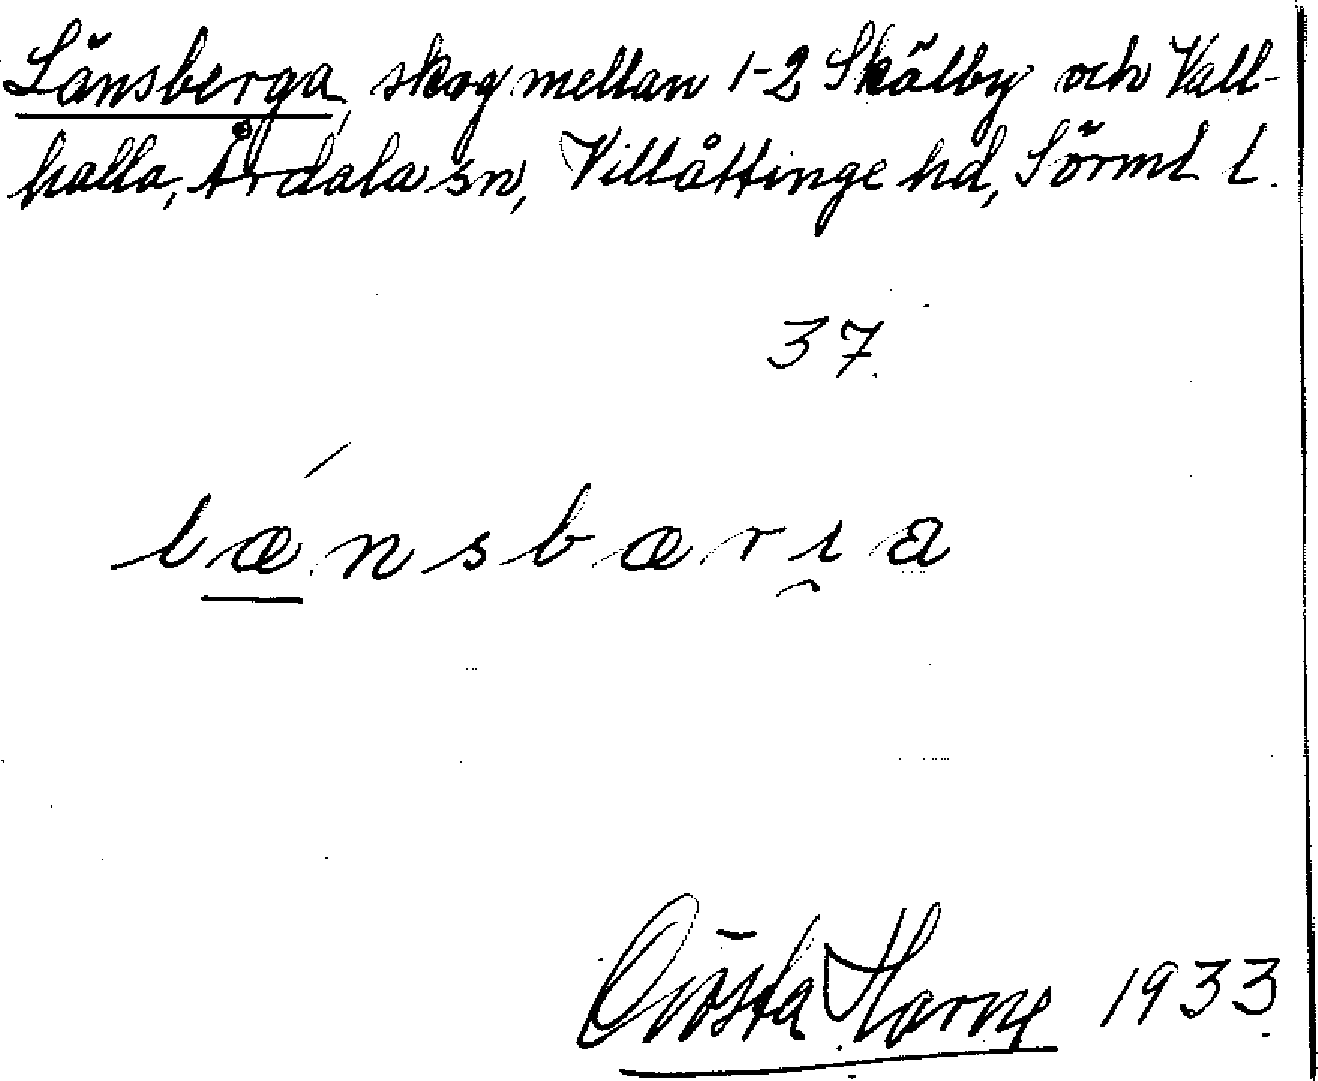 Länsberga, skog mellan 1-2 Skälby och Vall-
halla, Årdala sn, Villåttinge hd, Sörml l.
37.
lǽnsbæri̯a
Gösta Harne 1933